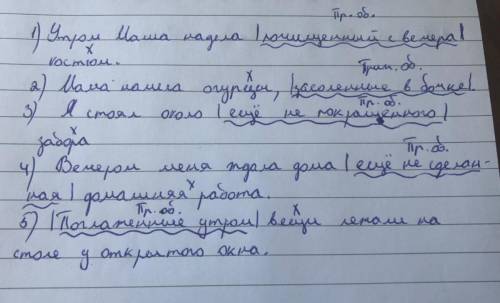 Пр. об.
1) Утром Маша надела |почищенный с вечера|
х
костюм.
х Прич. об.
2) Мама нашла огурцы, |засоленные в бочке|.
Пр. об.
3) Я стоял около |ещё не покрашенного|
х
забора
Пр. об.
4) Вечером меня ждала дома |ещё не сделан-
х
ная| домашняя работа.
Пр. об. х
5) |Поглаженные утром| вещи лежали на
столе у открытого окна.